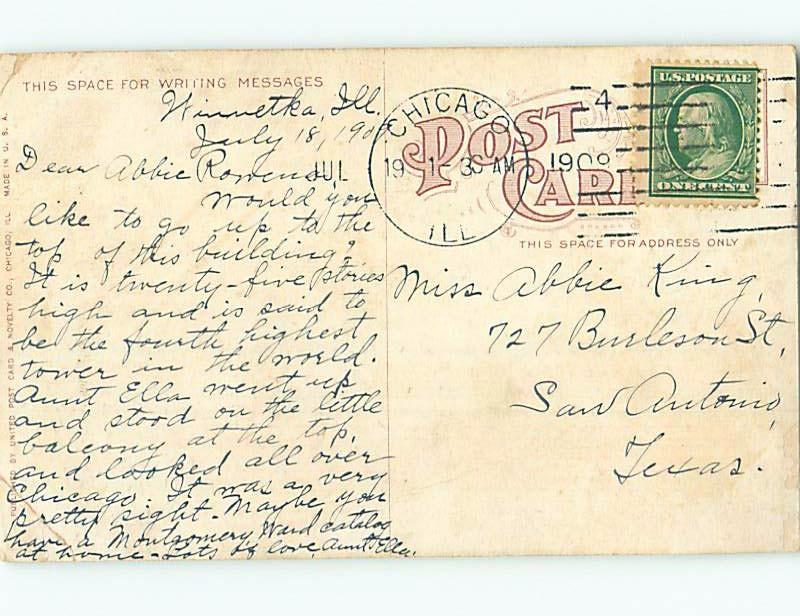 THIS SPACE FOR WRITING MESSAGES
Winnetka, Ill.
July 18, 190
Dear Abbie Rowena,
Would you
like to go up to the
top of this building?
It is twenty-five stories
high and is said to
be the fourth highest
tower in the world.
Aunt Ella went up
and stood on the little
balcony at the top,
and looked all over
Chicago. It was a very
pretty sight. Maybe you
have a Montgomery Ward catalog
at home - Lots of love, Aunt Ella.
PUBLISHED BY UNITED POST CARD & NOVELTY CO., CHICAGO, ILL. MADE IN U. S. A.
POST
CARD
CHICAGO
JUL 19 1 30 AM 1909
ILL
4
U.S. POSTAGE
ONE CENT
THIS SPACE FOR ADDRESS ONLY
Miss Abbie King,
727 Burleson St,
San Antonio,
Texas.